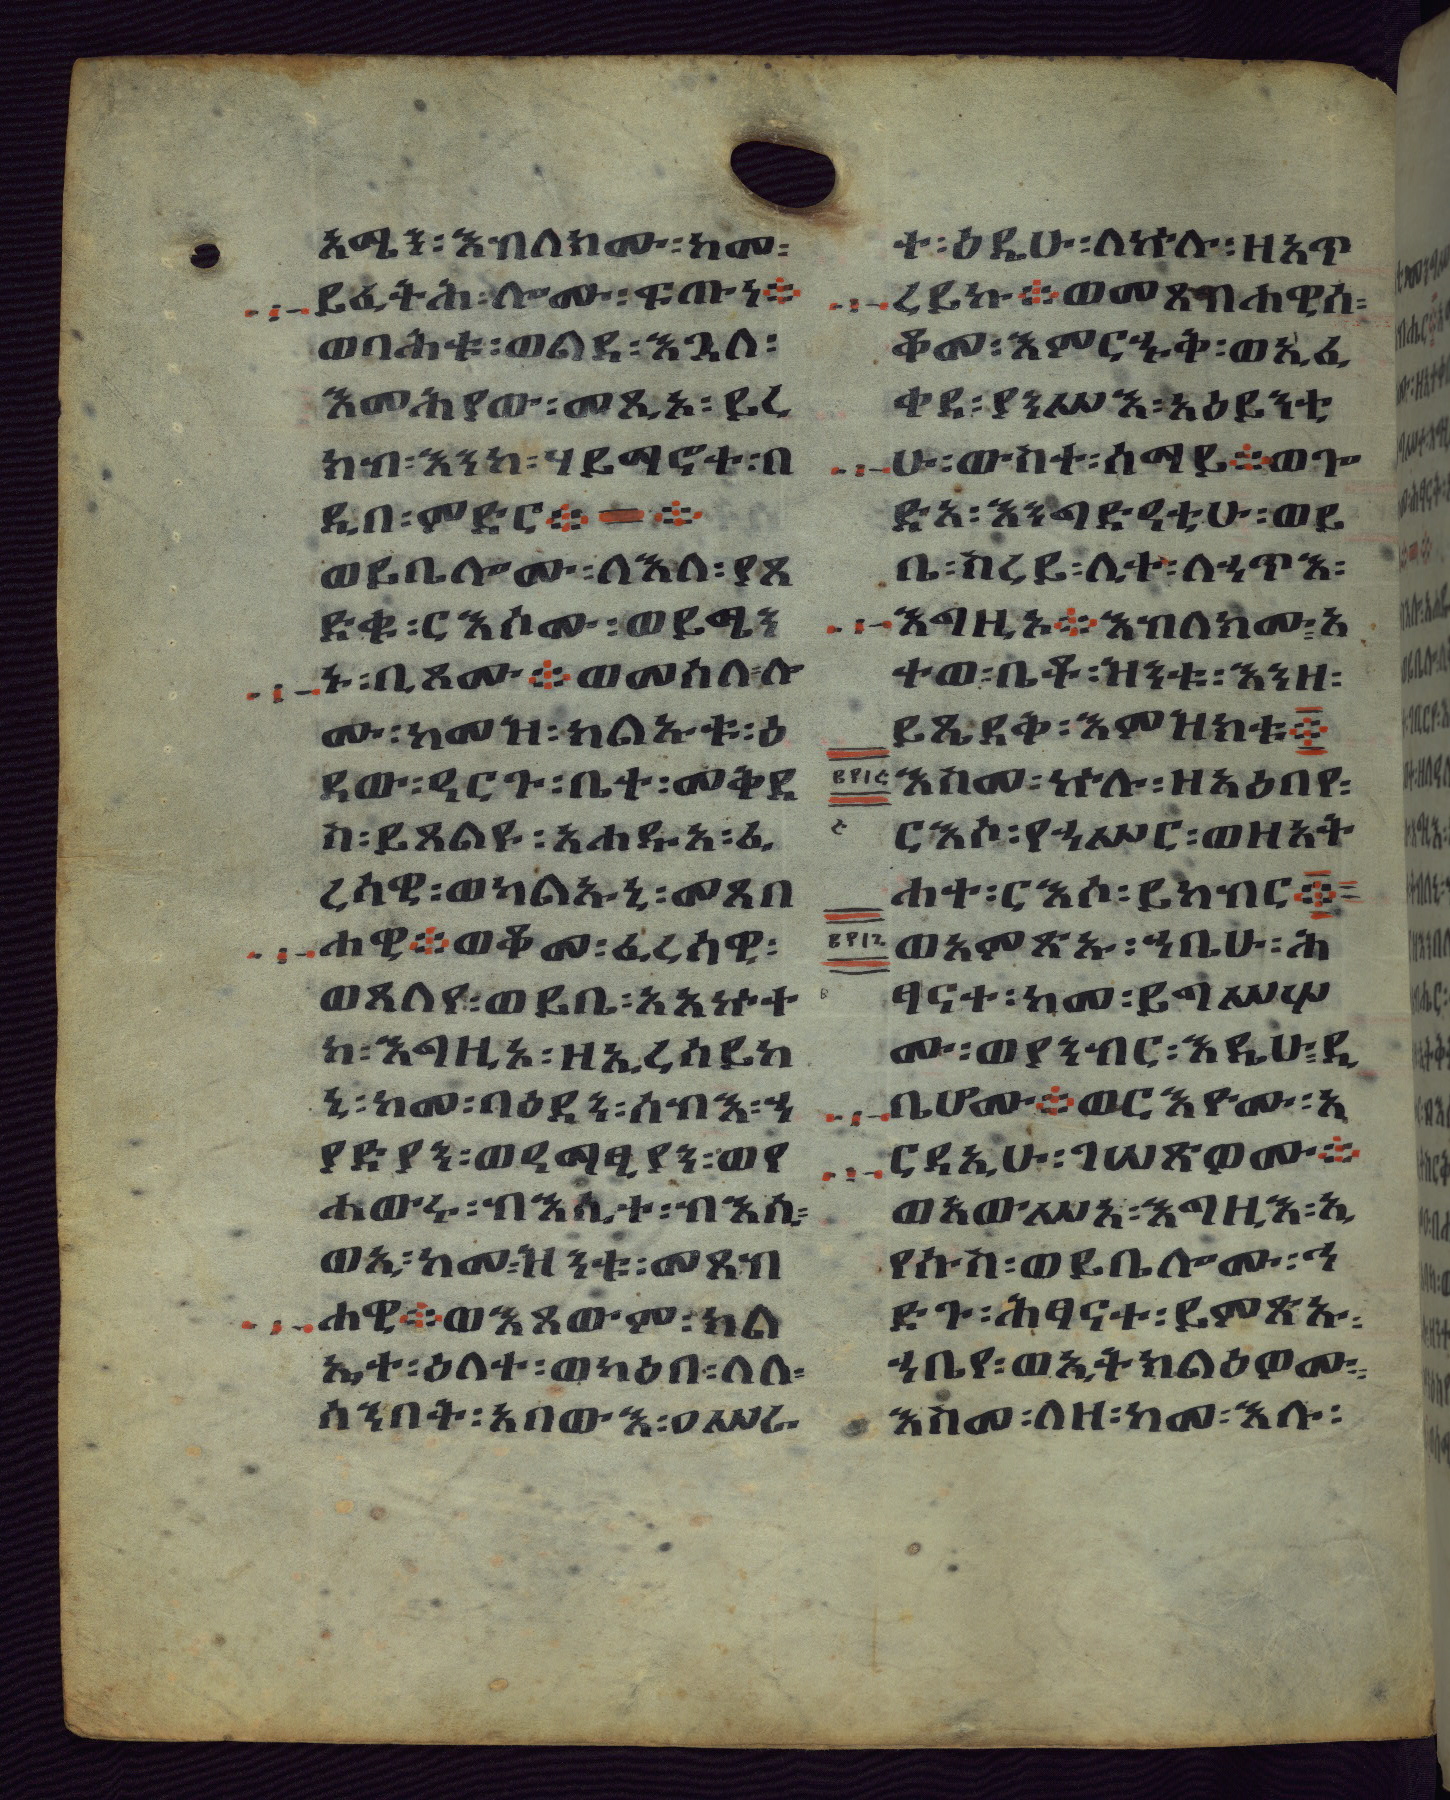 እሜን፡እብለክሙ፡ከመ፡
ይፈትሕ፡ሎሙ፡ፍጡነ፨
ወባሕቱ፡ወልደ፡እጓለ፡
እመሕያው፡መጺኦ፡ይረ
ክብ፡እንከ፡ሃይማኖተ፡በ
ዲበ፡ምድር፨ — ፨
ወይቤሎሙ፡ለእለ፡ያጸ
ድቁ፡ርእሶሙ፡ወይሜን
ኑ፡ቢጾሙ፨ወመሰለ፡ሎ
ሙ፡ከመዝ፡ክልኤቱ፡ዕ
ደው፡ዓርጉ፡ቤተ፡መቅደ
ስ፡ይጸልዩ፡አሐዱ፡አ፡ፈ
ረሳዊ፡ወካልኡኒ፡መጸብ
ሐዊ፨ወቆመ፡ፈረሳዊ፡
ወጸለየ፡ወይቤ፡አአኵተ
ከ፡እግዚኦ፡ዘኢረሰይከ
ኒ፡ከመ፡ባዕደን፡ሰብእ፡ኃ
ያድያን፡ወዓማፂያን፡ወየ
ሐውሩ፡ብእሲተ፡ብእሲ፡
ወኢ፡ከመ፡ዝንቱ፡መጸብ
ሐዊ፨ወእጸውም፡ክል
ኤተ፡ዕለተ፡ወካዕበ፡ለለ፡
ሰንበት፡እበውእ፡ዐሥራ
ተ፡ዕዴሁ፡ለኵሉ፡ዘአጥ
ረይኩ፨ወመጸብሐዊሰ፡
ቆመ፡እምርኁቅ፡ወኢፈ
ቀደ፡ያንሥእ፡አዕይንቲ
ሁ፡ውስተ፡ሰማይ፨ወጐ
ድአ፡እንግድዓቲሁ፡ወይ
ቤ፡ስረይ፡ሊተ፡ለኃጥእ፡
እግዚኦ፨እብለክሙ፡አ
ተወ፡ቤቶ፡ዝንቱ፡እንዘ፡
ይጼደቅ፡እምዝክቱ፨
እስመ፡ኵሉ፡ዘአዕበየ፡
ርእሶ፡የኃሥር፡ወዘአት
ሐተ፡ርእሶ፡ይከብር፨
ወአምጽኡ፡ኀቤሁ፡ሕ
ፃናተ፡ከመ፡ይግሥሥ
ሙ፡ወያንብር፡እዴሁ፡ዲ
ቤሆሙ፨ወርእዮሙ፡አ
ርዳኢሁ፡ገሠጽዎሙ፨
ወአውሥአ፡እግዚእ፡ኢ
የሱስ፡ወይቤሎሙ፡ኅ
ድጉ፡ሕፃናተ፡ይምጽኡ፡
ኀቤየ፡ወኢትክልዕዎሙ፡
እስመ፡ለዘ፡ከመ፡እሉ፡